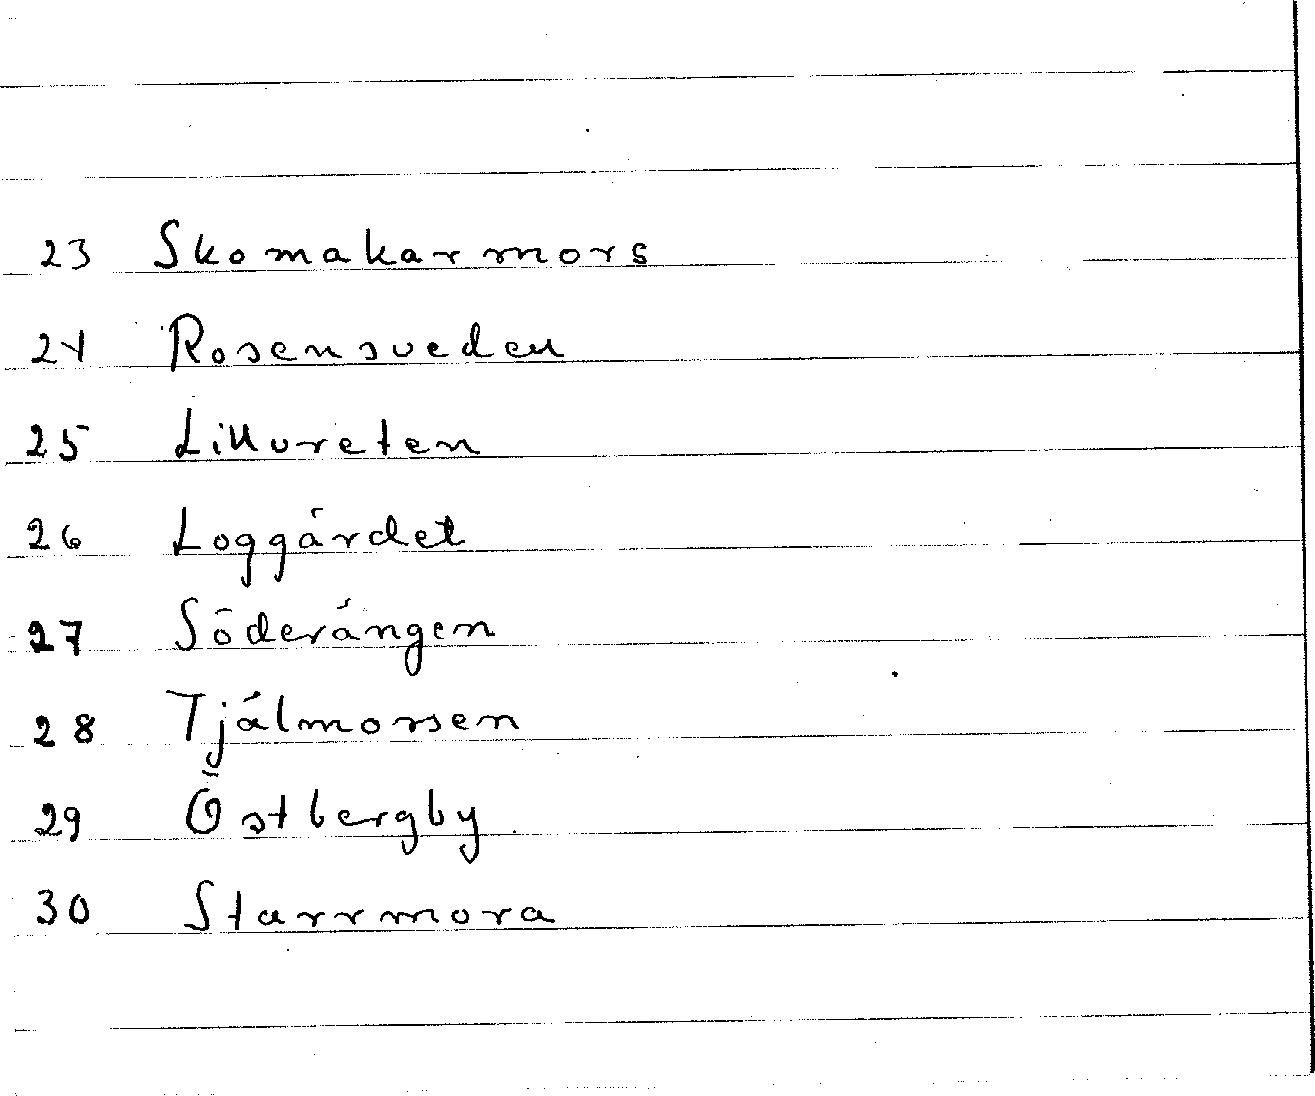 23 Skomakarmors
24 Rosensveden
25 Lillvreten
26 Loggärdet
27 Söderängen
28 Tjälmorsen
29 Östbergby
30 Starrmora